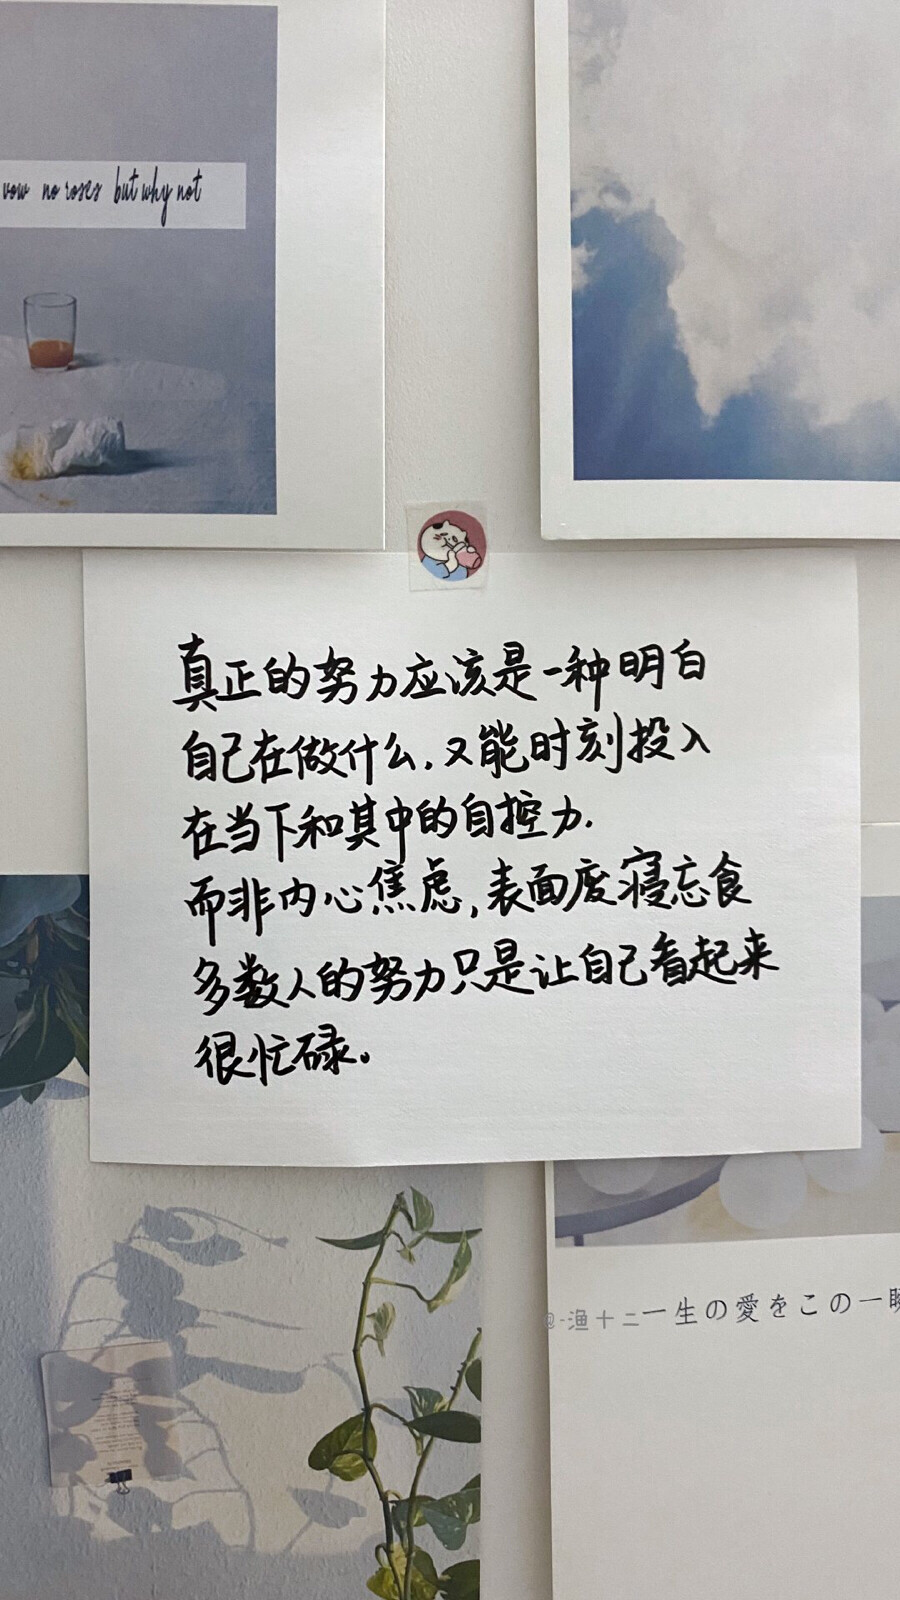 vow no roses but why not
真正的努力应该是一种明白
自己在做什么.又能时刻投入
在当下和其中的自控力.
而非内心焦虑,表面废寝忘食
多数人的努力只是让自己看起来
很忙碌。
@-渔十二一生の愛をこの一瞬